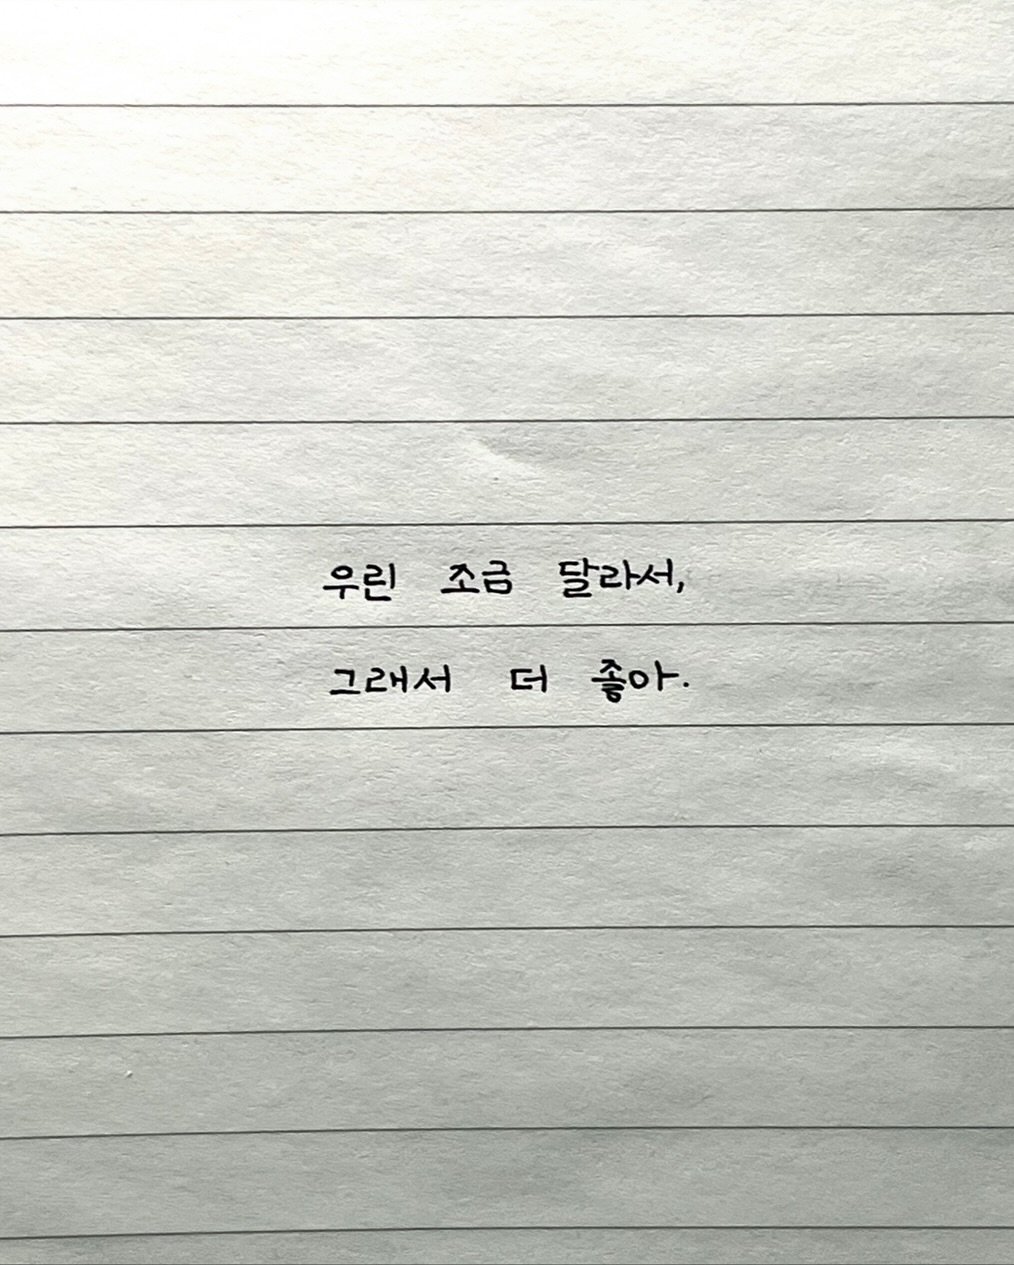 우린 조금 달라서,
그래서 더 좋아.